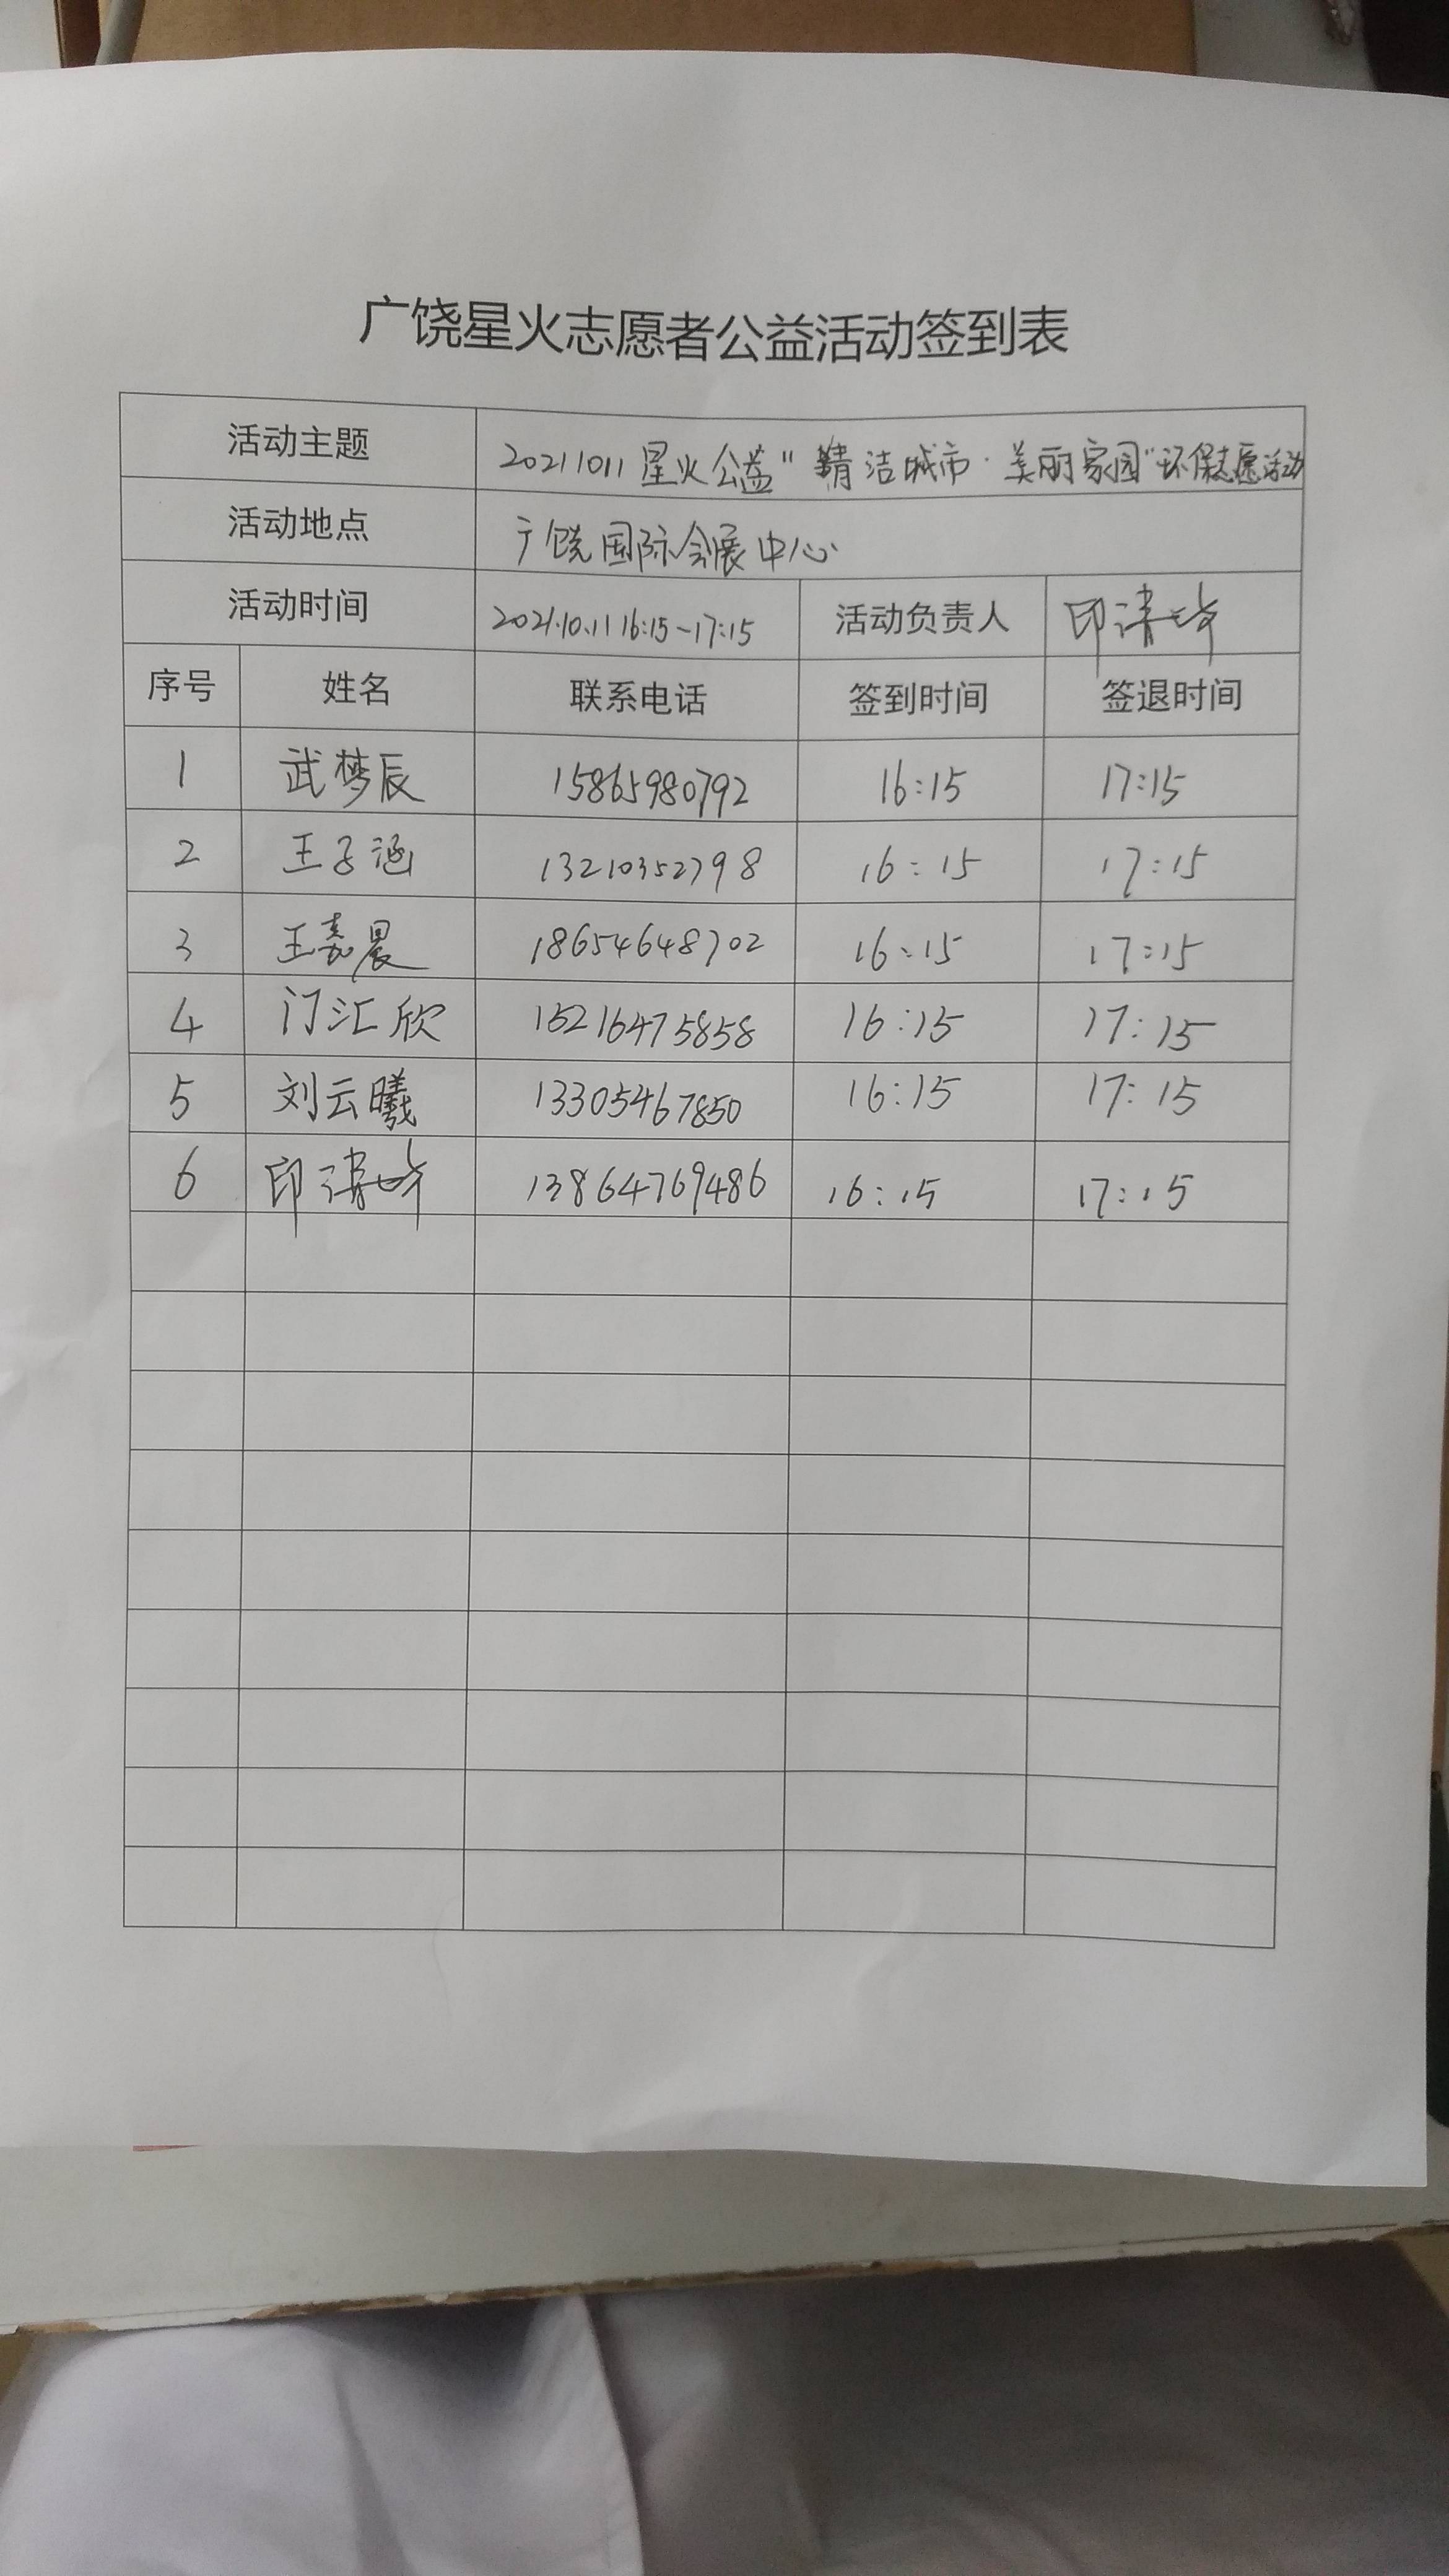 广饶星火志愿者公益活动签到表
活动主题 20211011星火公益"精洁城市·美丽家园"环保志愿活动
活动地点 广饶国际会展中心
活动时间 2021.10.11 16:15-17:15 活动负责人 印清
序号 姓名 联系电话 签到时间 签退时间
1 武梦辰 15865980792 16:15 17:15
2 王子涵 13210352798 16:15 17:15
3 王嘉晨 18654648702 16:15 17:15
4 门汇欣 15216475858 16:15 17:15
5 刘云曦 13305467850 16:15 17:15
6 印清 13864769486 16:15 17:15